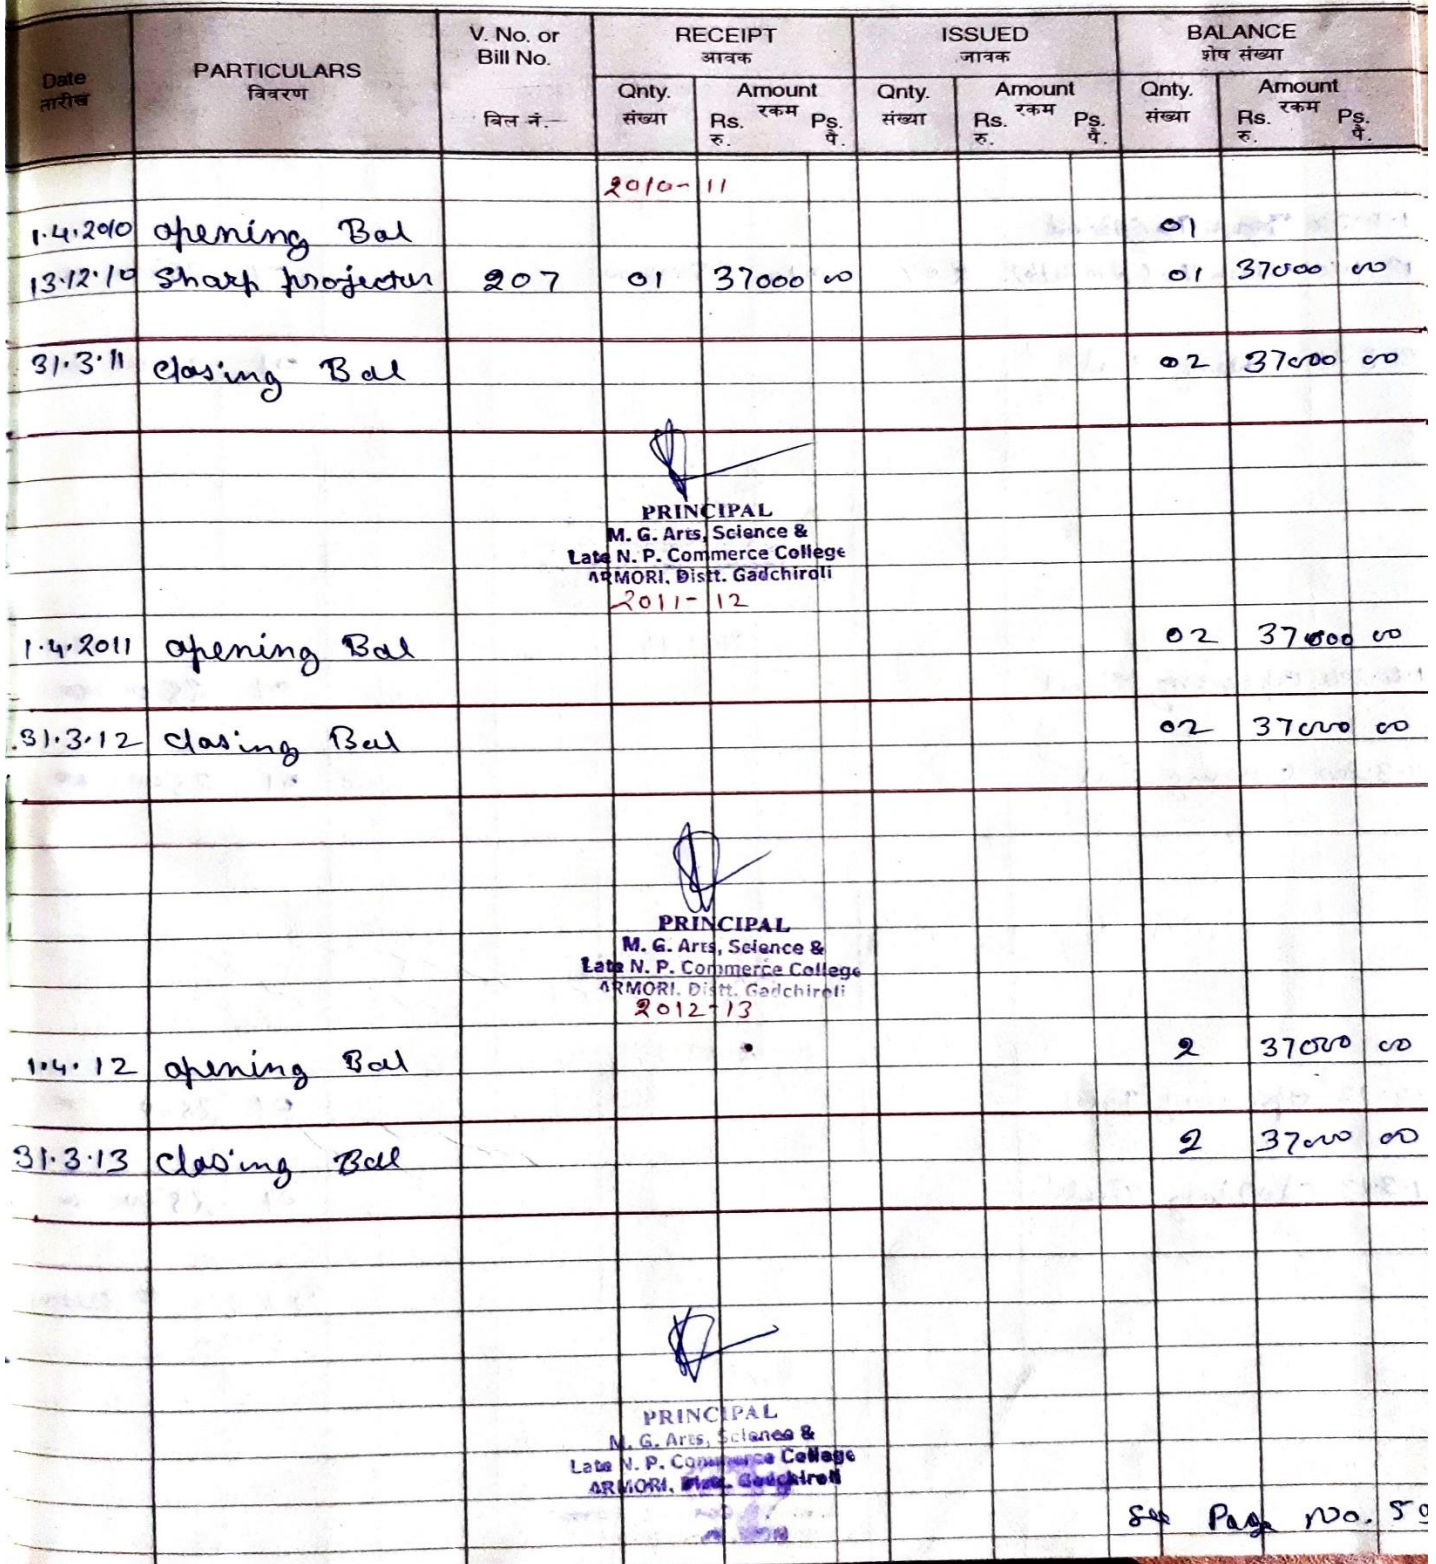 Date तारीख PARTICULARS विवरण V. No. or Bill No. बिल नं. RECEIPT आवक ISSUED जावक BALANCE शेष संख्या
Qnty. संख्या Amount रकम Rs. रु. Ps. पै. Qnty. संख्या Amount रकम Rs. रु. Ps. पै. Qnty. संख्या Amount रकम Rs. रु. Ps. पै.
2010-11
1.4.2010 opening Bal 01
13.12.10 Sharp projector 207 01 37000 00 01 37000 00
31.3.11 closing Bal 02 37000 00
PRINCIPAL
M. G. Arts, Science &
Late N. P. Commerce College
ARMORI. Distt. Gadchiroli
2011-12
1.4.2011 opening Bal 02 37000 00
31.3.12 closing Bal 02 37000 00
PRINCIPAL
M. G. Arts, Science &
Late N. P. Commerce College
ARMORI. Distt. Gadchiroli
2012-13
1.4.12 opening Bal 2 37000 00
31.3.13 closing Bal 2 37000 00
PRINCIPAL
M. G. Arts, Science &
Late N. P. Commerce College
ARMORI, Distt. Gadchiroli
See Page No.